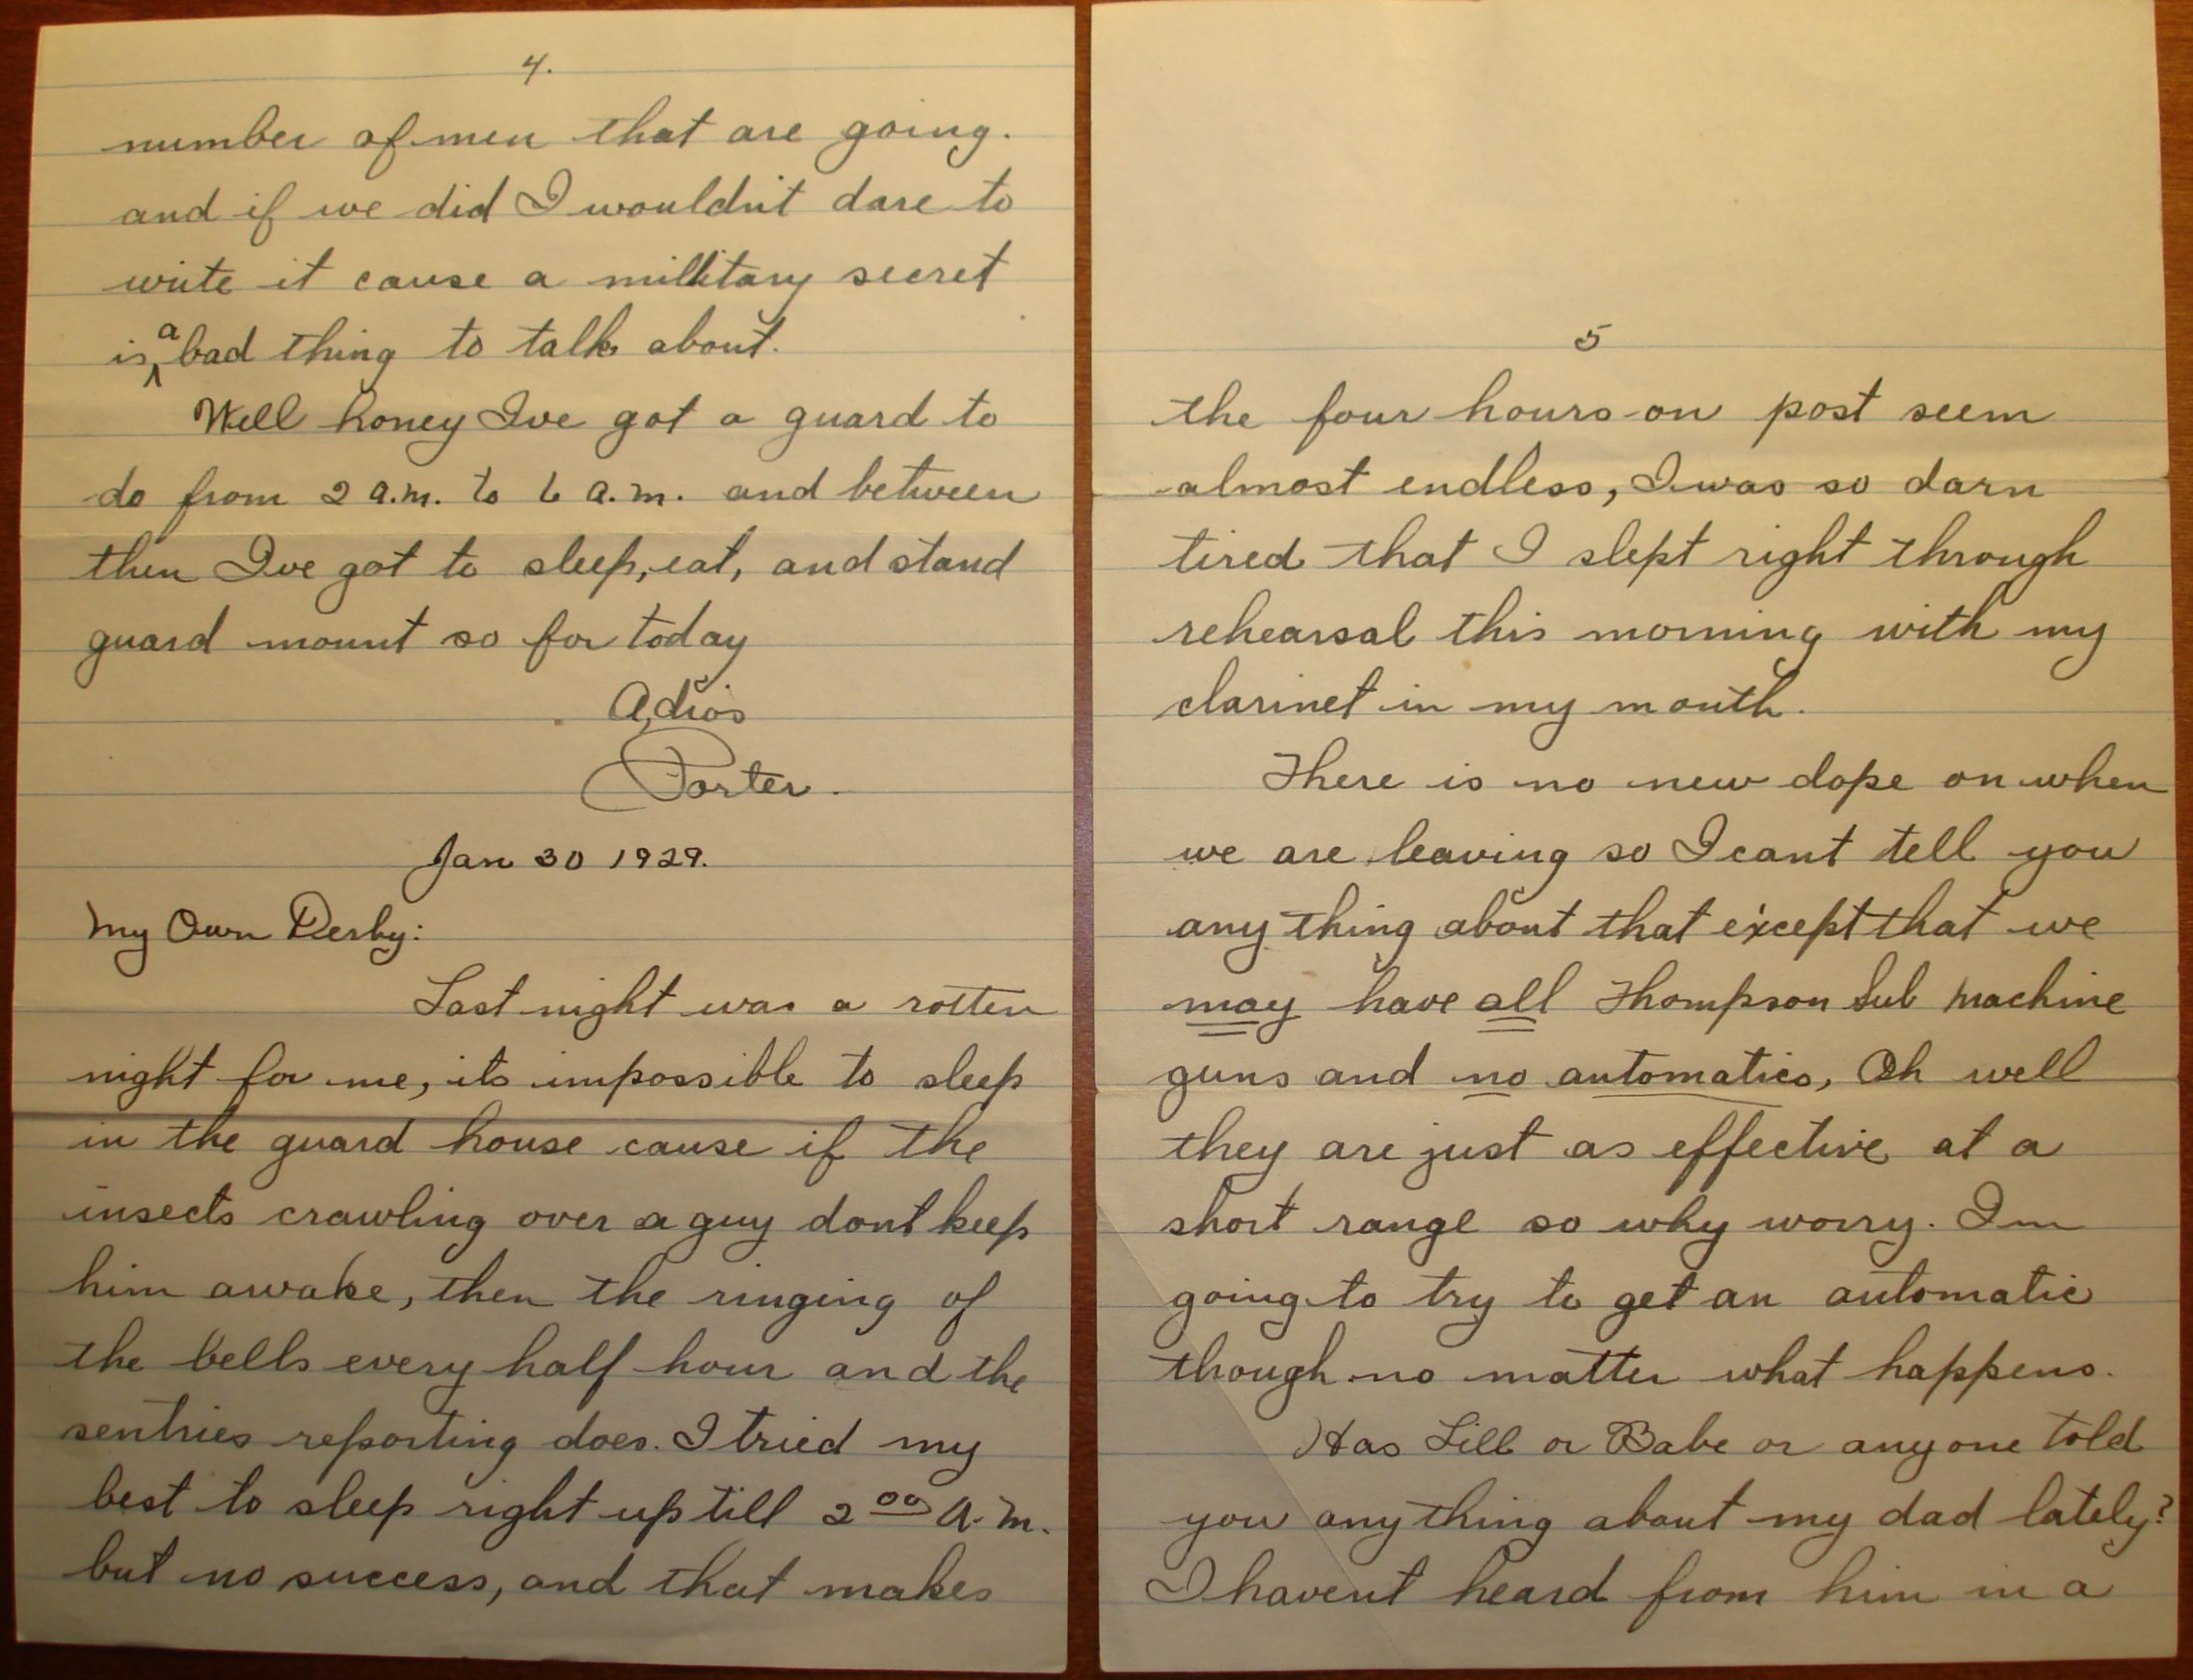 4.
number of men that are going.
and if we did I wouldn't dare to
write it cause a millitary secret
is a bad thing to talk about.
Well honey Ive got a guard to
do from 2 a.m. to 6 a.m. and between
then Ive got to sleep, eat, and stand
guard mount so for today
Adios
Porter.
Jan 30 1929.
My Own Derby:
Last night was a rotten
night for me, its impossible to sleep
in the guard house cause if the
insects crawling over a guy dont keep
him awake, then the ringing of
the bells every half hour and the
sentries reporting does. I tried my
best to sleep right up till 2 00 A.M.
but no success, and that makes
5
the four hours on post seem
almost endless, I was so darn
tired that I slept right through
rehearsal this morning with my
clarinet in my mouth.
There is no new dope on when
we are leaving so I cant tell you
any thing about that except that we
may have all Thompson Sub Machine
guns and no automatics, Oh well
they are just as effective at a
short range so why worry. Im
going to try to get an automatic
though no matter what happens.
Has Lill or Babe or anyone told
you any thing about my dad lately?
I havent heard from him in a